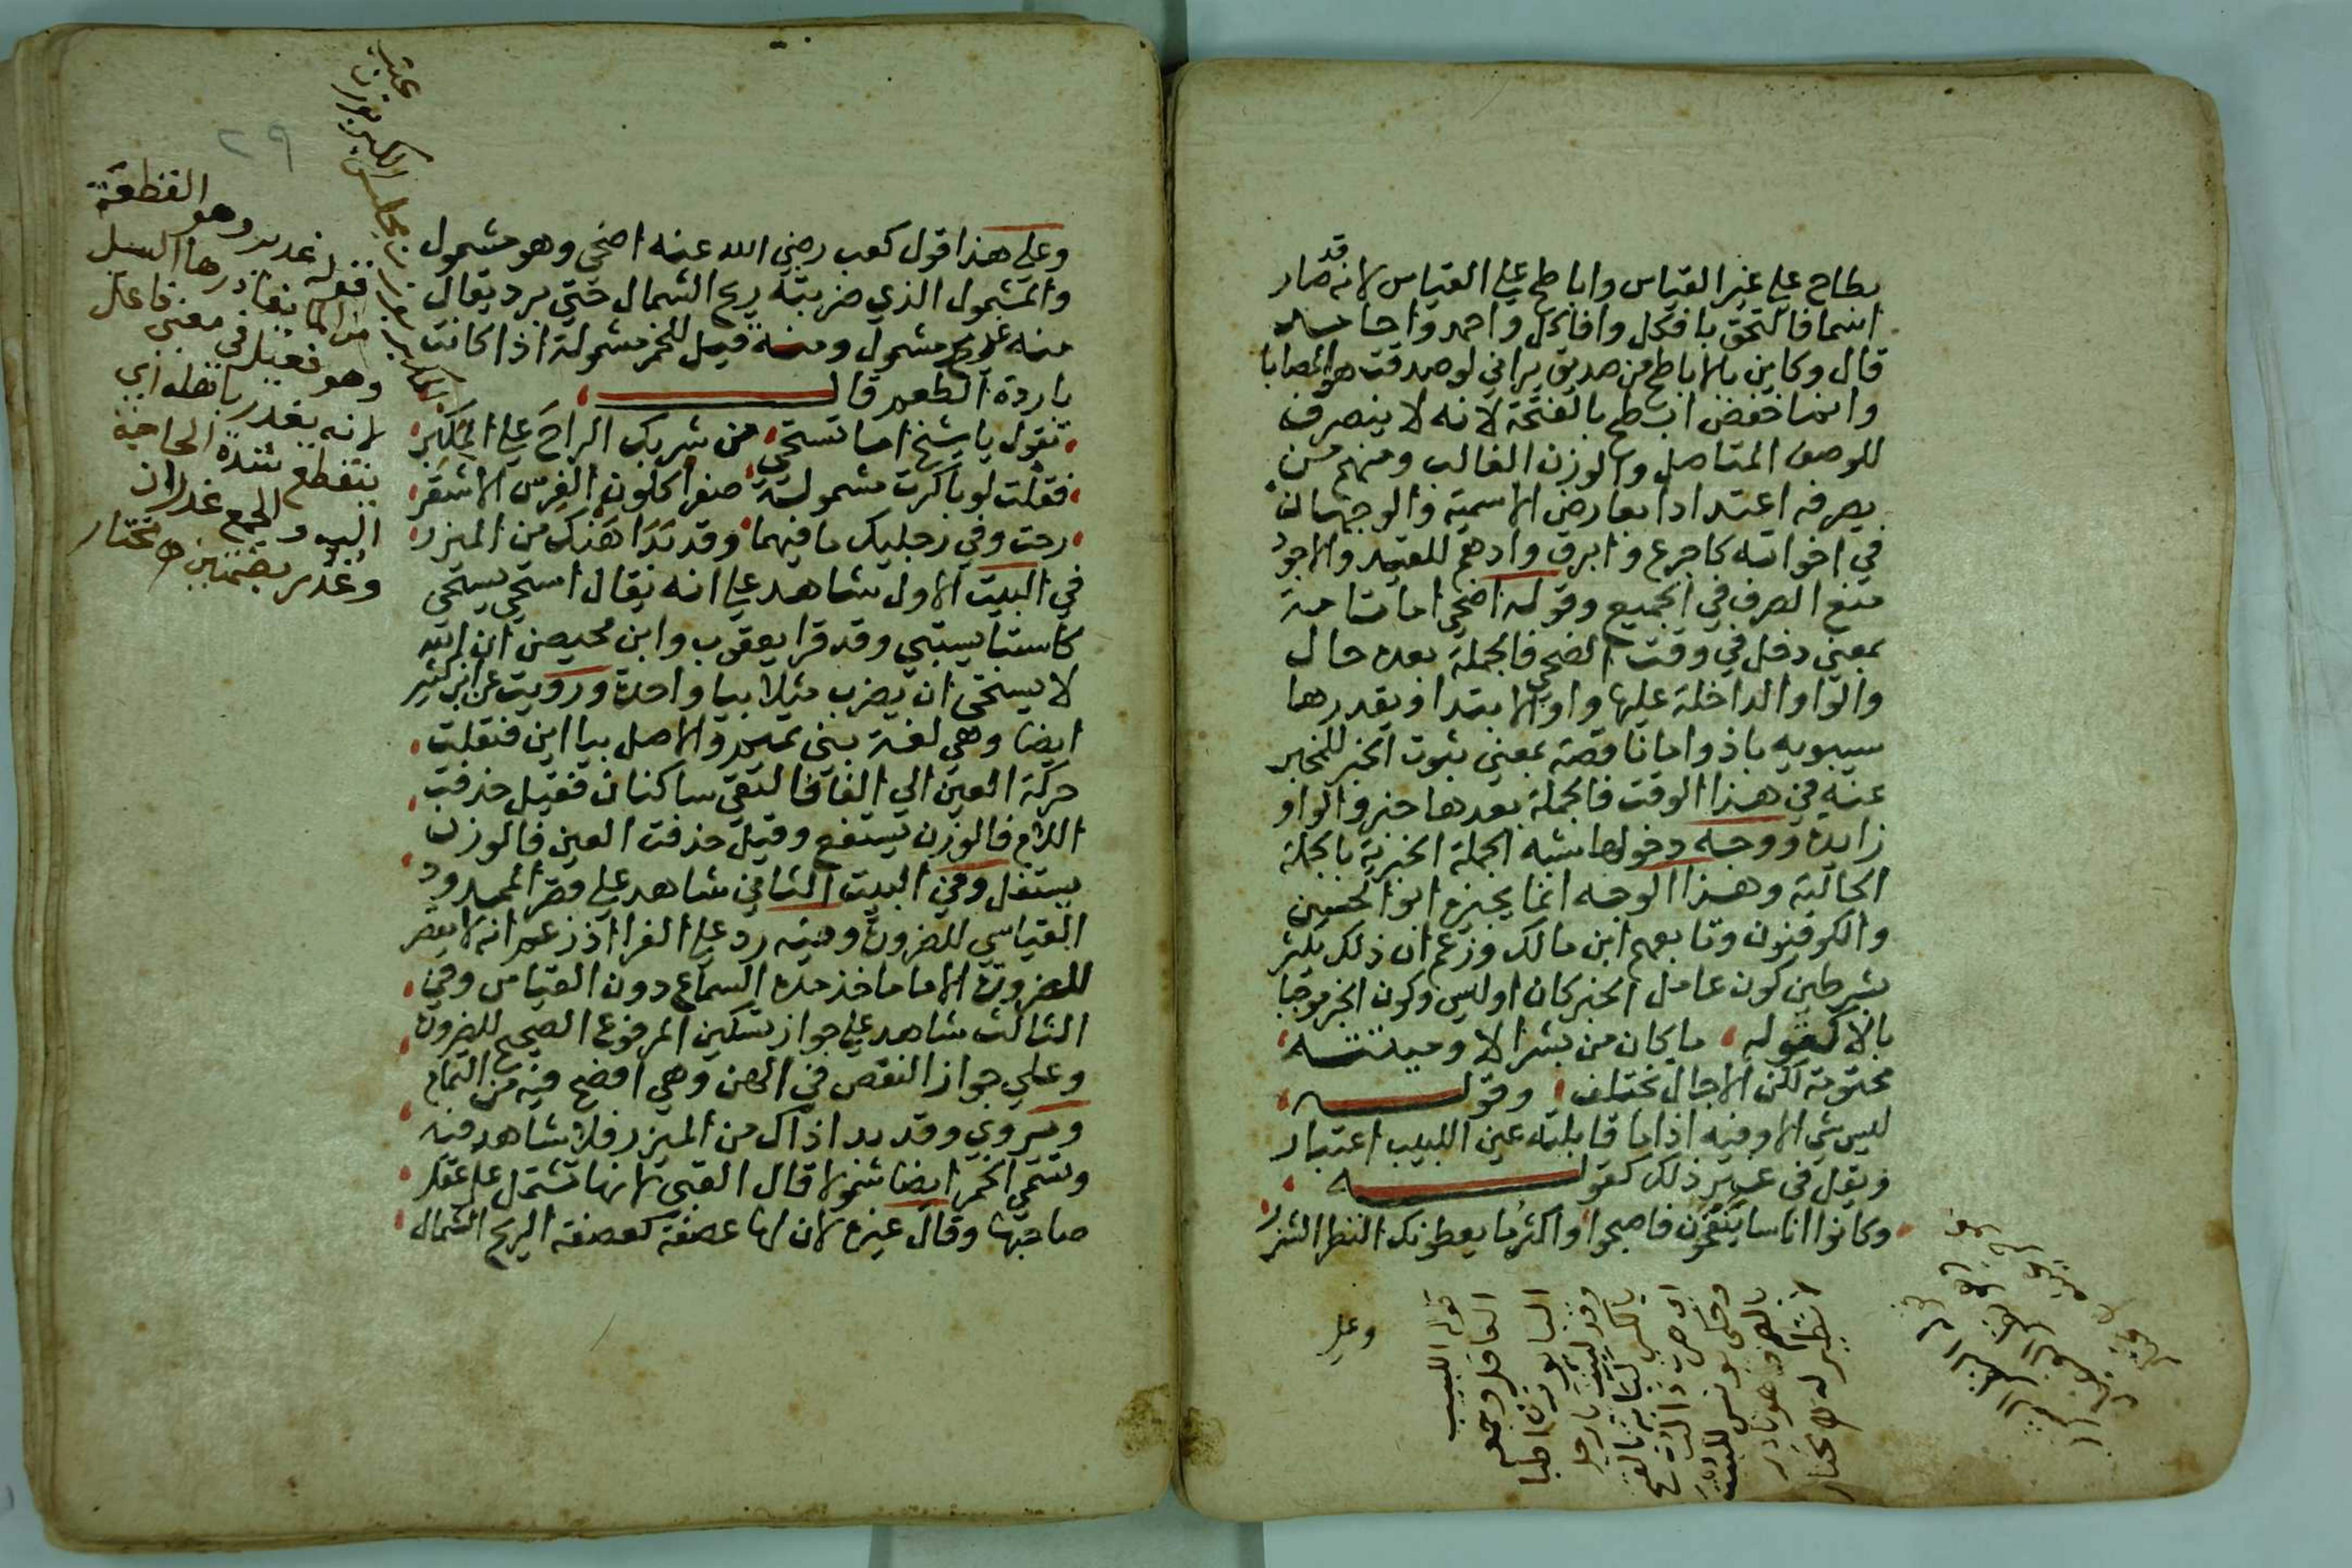 بطاح علي غير القياس واباطح علي القياس لانه قد صار
اسما فالتحق بافكل وافاكل واحمد واحامد
قال وكاين بالاباطح من صديق يراني لو صدقت هو المصابا
وانما خفض ابطح بالفتحة لانه لا ينصرف
للوصف المتاصل والوزن الغالب ومنهم من
يصرفه اعتدادا بعارض الاسمية والوجهان
في اخواته كاجرع وابرق وادهم للقيد والاجود
منع الصرف في الجميع وقوله اضحي اما تامة
بمعني دخل في وقت الضحي فالجملة بعده حال
والواو الداخلة عليها واو الابتدا ويقدرها
سيبويه باذ واما ناقصة بمعني ثبوت الخبر للمخبر
عنه في هذا الوقت فالجملة بعدها خبر والواو
زايدة ووجه دخولها شبه الجملة الخبرية بالجملة
الحالية وهذا الوجه انما يجيزه ابو الحسن
والكوفيون وتابعهم ابن مالك وزعم ان ذلك يكثر
بشرطين كون عامل الخبر كان او ليس وكون الخبر موجبا
بالا كقوله ما كان من بشر الا وميتته
محتومة لكن الاجال تختلف وقوله
ليس شي الا وفيه اذا ما قابلته عين اللبيب اعتبار
ويقل في غير ذلك كقوله
وكانوا اناسا ينفحون فاصبحوا واكثر ما يعطونك النظر الشزر
وعلي
قوله اللبيب
العاقل وجمعه
وعلي هذا قول كعب رضي الله عنه اضحي وهو مشمول
والمشمول الذي ضربته ريح الشمال حتي برد يقال
منه غدير مشمول ومنه قيل للخمر مشمولة اذا كانت
باردة الطعم قال
تقول يا شيخ اما تستحي من شربك الراح علي المكبر
فقلت لو باكرت مشمولة صفرا كلون الفرس الاشقر
رحت وفي رجليك ما فيهما وقد بدا هنك من الميزر
في البيت الاول شاهد علي انه يقال استحي يستحي
كاستبا يستبي وقد قرا يعقوب وابن محيصن ان الله
لا يستحي ان يضرب مثلا بيا واحدة ورويت عن ابن كثير
ايضا وهي لغة بني تميم والاصل بياين فنقلت
حركة العين الي الفا فالتقي ساكنان فقيل حذفت
اللام فالوزن يستفع وقيل حذفت العين فالوزن
يستفل وفي البيت الثاني شاهد علي قصر الممدود
القياسي للضرورة وفيه رد علي الفرا اذ زعم انه لا يقصر
للضرورة الا ما ماخذ مده السماع دون القياس وفي
الثالث شاهد علي جواز تسكين المرفوع الصحيح للضرورة
وعلي جواز النقص في الهن وهي افصح فيه من التمام
ويروي وقد بدا ذاك من الميزر فلا شاهد فيه
وتسمي الخمر ايضا شمولا قال القتبي لانها تشتمل علي عقل
صاحبها وقال غيره لان لها عصفة كعصفة الريح الشمال
٢٩
قوله غدير وهو القطعة
من الما يغادرها السيل
وهو فعيل في معني فاعل
لانه يغدر باهله اي
ينقطع شدة الحاجة
اليه والجمع غدران
وغدر بضمتين ه مختار